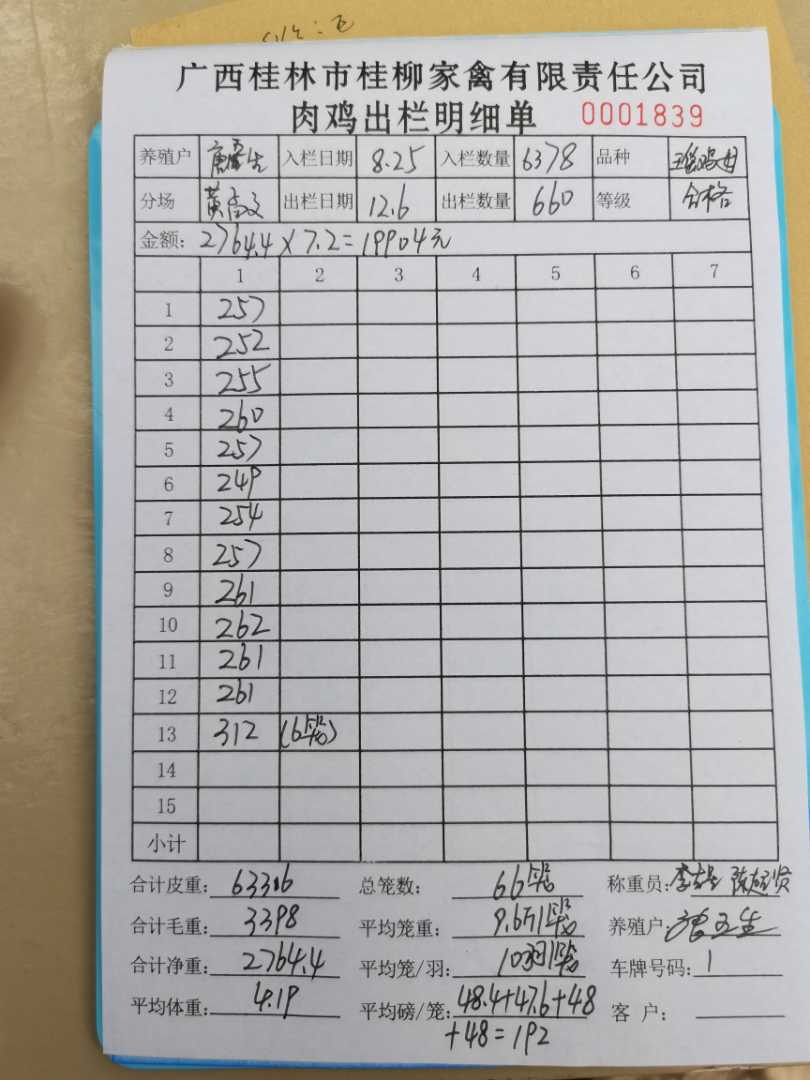 广西桂林市桂柳家禽有限责任公司
肉鸡出栏明细单 0001839
养殖户 入栏日期 8.25 入栏数量 6378 品种
分场 黄 出栏日期 12.6 出栏数量 660 等级 合格
金额: 2764.4×7.2=19904元
1 2 3 4 5 6 7
1 257
2 252
3 255
4 260
5 257
6 249
7 254
8 257
9 261
10 262
11 261
12 261
13 312 (6笼)
14
15
小计
合计皮重: 633.6 总笼数: 66笼 称重员:
合计毛重: 3398 平均笼重: 9.6斤/笼 养殖户:
合计净重: 2764.4 平均笼/羽: 10羽/笼 车牌号码: 1
平均体重: 4.19 平均磅/笼: 48.4+47.6+48 客 户:
+48=192